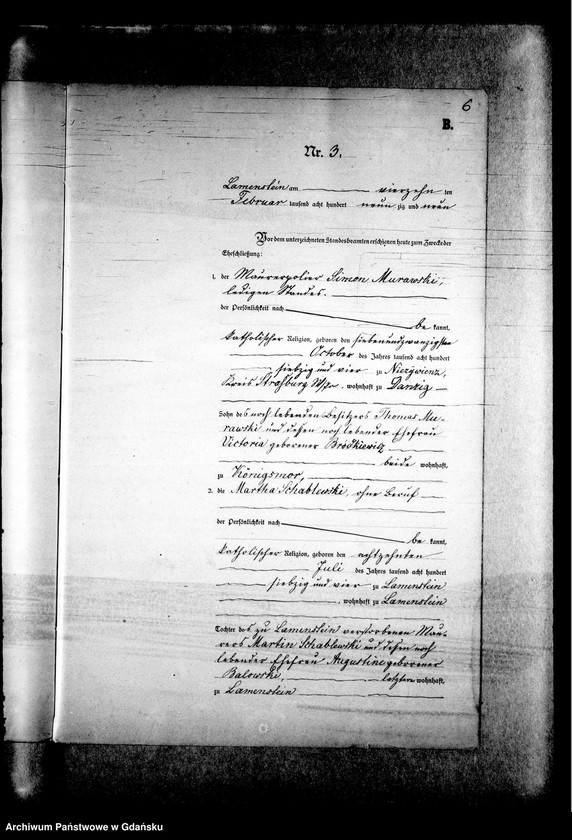 6
B.
Nr. 3.
Lamenstein am vierzehn ten
Februar tausend acht hundert neun zig und neun
Vor dem unterzeichneten Standesbeamten erschienen heute zum Zwecke der
Eheschließung:
1. der Maurerpolier Simon Murawski,
ledigen Standes.
der Persönlichkeit nach
be kannt,
katholischer Religion, geboren den siebenundzwanzigsten
October des Jahres tausend acht hundert
siebzig und vier zu Niezywienz,
Kreis Strasburg W/pr., wohnhaft zu Danzig
Sohn des noch lebenden Besitzers Thomas Mu-
rawski und dessen noch lebender Ehefrau
Victoria geborener Brodkiewicz
beide wohnhaft
zu Königsmor,
2. die Martha Schablewski, ohne Beruf
der Persönlichkeit nach
be kannt,
katholischer Religion, geboren den achtzehnten
Juli des Jahres tausend acht hundert
siebzig und vier zu Lamenstein
, wohnhaft zu Lamenstein
Tochter des zu Lamenstein verstorbenen Mau-
rers Martin Schablewski und dessen noch
lebender Ehefrau Augustine geborener
Balowski, letztere wohnhaft
zu Lamenstein
Archiwum Państwowe w Gdańsku